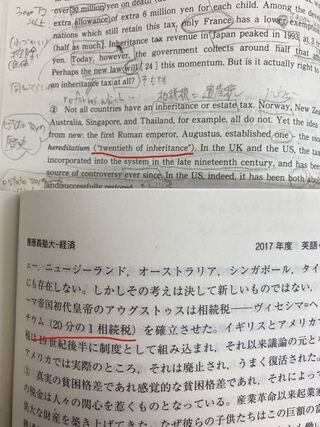 over 30 million yen on death
allowance of extra 6 million yen for each child. Among the
nations which still retain this tax, only France has a lower exemption
(half as much). Inheritance tax revenue in Japan peaked in 1993 at 3
yen. Today, however, the government collects around half that
Perhaps the new law will [ 24 ] this momentum. But is it actually right to
an inheritance tax at all?
② Not all countries have an inheritance or estate tax. Norway, New
Australia, Singapore, and Thailand, for example, all do not. Yet the idea
from new: the first Roman emperor, Augustus, established one - the
hereditatium ("twentieth of inheritance"). In the UK and the US, the tax
incorporated into the system in the late nineteenth century, and has been
source of controversy ever since. In the US, indeed, it has been both
and successfully restored
慶應義塾大-経済
2017年度 英語
ェー、ニュージーランド、オーストラリア、シンガポール、タイ
にも存在しない。しかしその考えは決して新しいものではない。
ーマ帝国初代皇帝のアウグストゥスは相続税――ヴィセシマ=ヘ
チウム(20分の1相続税)を確立させた。イギリスとアメリカ
税は19世紀後半に制度として組み込まれ、それ以来議論の元と
アメリカでは実際のところ、それは廃止され、うまく復活された。
③ 真実の貧困格差であれ感覚的な貧困格差であれ、それによっ
の税金は人々の関心を惹くものとなっている。産業革命以来起業家
莫大な財産を築き上げてきた。なぜ彼らの子供たちはこの巨額の富